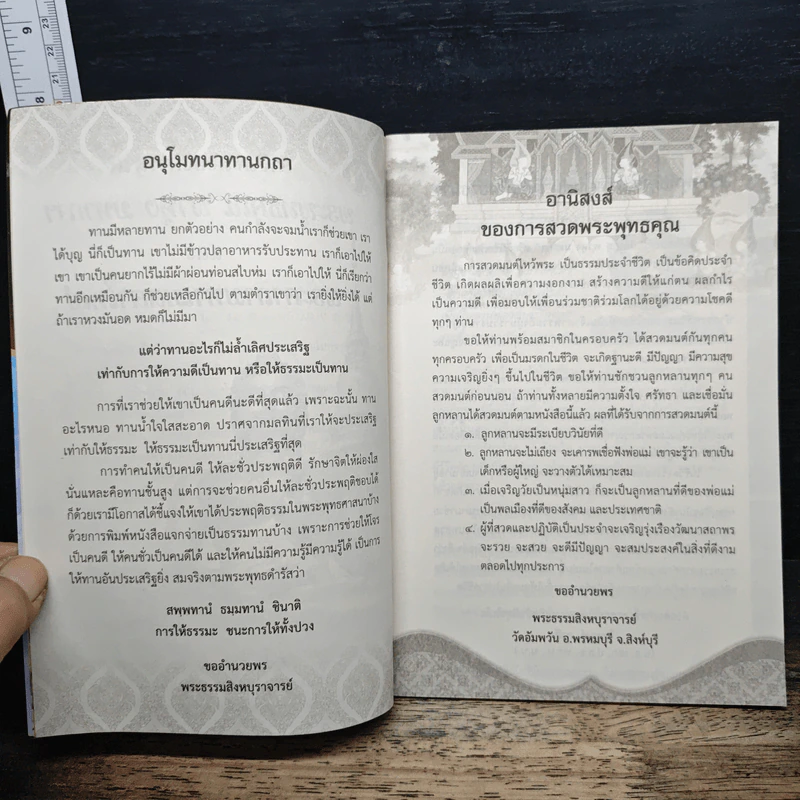 9
23
22
21
8
อนุโมทนาทานกถา
ทานมีหลายทาน ยกตัวอย่าง คนกำลังจะจมน้ำเราก็ช่วยเขา เรา
ได้บุญ นี่ก็เป็นทาน เขาไม่มีข้าวปลาอาหารรับประทาน เราก็เอาไปให้
เขา เขาเป็นคนยากไร้ไม่มีผ้าผ่อนท่อนสไบห่ม เราก็เอาไปให้ นี่ก็เรียกว่า
ทานอีกเหมือนกัน ก็ช่วยเหลือกันไป ตามตำราเขาว่า เรายิ่งให้ยิ่งได้ แต่
ถ้าเราหวงมันอด หมดก็ไม่มีมา
แต่ว่าทานอะไรก็ไม่ล้ำเลิศประเสริฐ
เท่ากับการให้ความดีเป็นทาน หรือให้ธรรมะเป็นทาน
การที่เราช่วยให้เขาเป็นคนดีนะดีที่สุดแล้ว เพราะฉะนั้น ทาน
อะไรหนอ ทานน้ำใจใสสะอาด ปราศจากมลทินที่เราให้จะประเสริฐ
เท่ากับให้ธรรมะ ให้ธรรมะเป็นทานนี่ประเสริฐที่สุด
การทำคนให้เป็นคนดี ให้ละชั่วประพฤติดี รักษาจิตให้ผ่องใส
นั่นแหละคือทานชั้นสูง แต่การจะช่วยคนอื่นให้ละชั่วประพฤติชอบได้
ก็ด้วยเรามีโอกาสได้ชี้แจงให้เขาได้ประพฤติธรรมในพระพุทธศาสนาบ้าง
ด้วยการพิมพ์หนังสือแจกจ่ายเป็นธรรมทานบ้าง เพราะการช่วยให้โจร
เป็นคนดี ให้คนชั่วเป็นคนดีได้ และให้คนไม่มีความรู้มีความรู้ได้ เป็นการ
ให้ทานอันประเสริฐยิ่ง สมจริงตามพระพุทธดำรัสว่า
สพฺพทานํ ธมฺมทานํ ชินาติ
การให้ธรรมะ ชนะการให้ทั้งปวง
ขออำนวยพร
พระธรรมสิงหบุราจารย์
อานิสงส์
ของการสวดพระพุทธคุณ
การสวดมนต์ไหว้พระ เป็นธรรมประจำชีวิต เป็นข้อคิดประจำ
ชีวิต เกิดผลผลิเพื่อความงอกงาม สร้างความดีให้แก่ตน ผลกำไร
เป็นความดี เพื่อมอบให้เพื่อนร่วมชาติร่วมโลกได้อยู่ด้วยความโชคดี
ทุกๆ ท่าน
ขอให้ท่านพร้อมสมาชิกในครอบครัว ได้สวดมนต์กันทุกคน
ทุกครอบครัว เพื่อเป็นมรดกในชีวิต จะเกิดฐานะดี มีปัญญา มีความสุข
ความเจริญยิ่งๆ ขึ้นไปในชีวิต ขอให้ท่านชักชวนลูกหลานทุกๆ คน
สวดมนต์ก่อนนอน ถ้าท่านทั้งหลายมีความตั้งใจ ศรัทธา และเชื่อมั่น
ลูกหลานได้สวดมนต์ตามหนังสือนี้แล้ว ผลที่ได้รับจากการสวดมนต์นี้
๑. ลูกหลานจะมีระเบียบวินัยที่ดี
๒. ลูกหลานจะไม่เถียง จะเคารพเชื่อฟังพ่อแม่ เขาจะรู้ว่า เขาเป็น
เด็กหรือผู้ใหญ่ จะวางตัวได้เหมาะสม
๓. เมื่อเจริญวัยเป็นหนุ่มสาว ก็จะเป็นลูกหลานที่ดีของพ่อแม่
เป็นพลเมืองที่ดีของสังคม และประเทศชาติ
๔. ผู้ที่สวดและปฏิบัติเป็นประจำจะเจริญรุ่งเรืองวัฒนาสถาพร
จะรวย จะสวย จะดีมีปัญญา จะสมประสงค์ในสิ่งที่ดีงาม
ตลอดไปทุกประการ
ขออำนวยพร
พระธรรมสิงหบุราจารย์
วัดอัมพวัน อ.พรหมบุรี จ.สิงห์บุรี